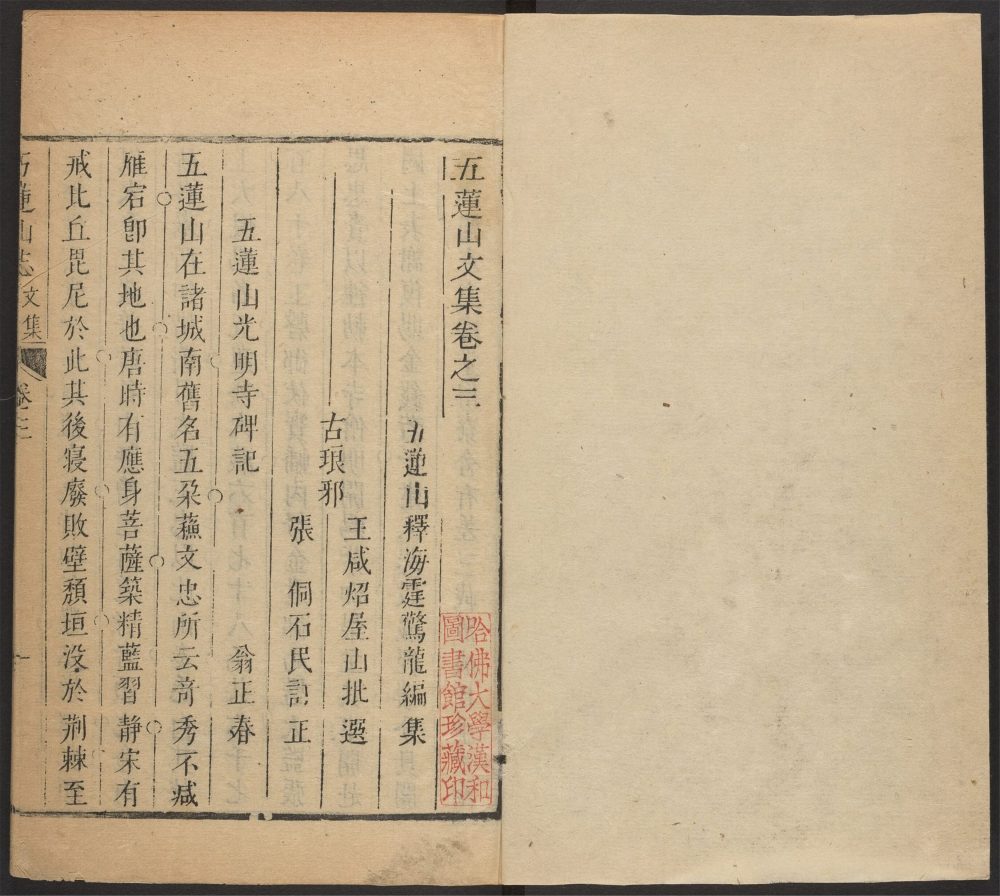 五蓮山文集卷之三
五蓮山釋海霆驚龍編集
王咸炤屋山批選
古琅邪
張侗石民訂正
五蓮山光明寺碑記
翁正春
五蓮山在諸城南舊名五朶蘓文忠所云竒秀不減
雁宕卽其地也唐時有應身菩薩築精藍習静宋有
戒比丘毘尼於此其後寝廢敗壁頹垣没於荆棘至
五蓮山志
文集
卷之三
一
哈佛大學漢和
圖書館珍藏印